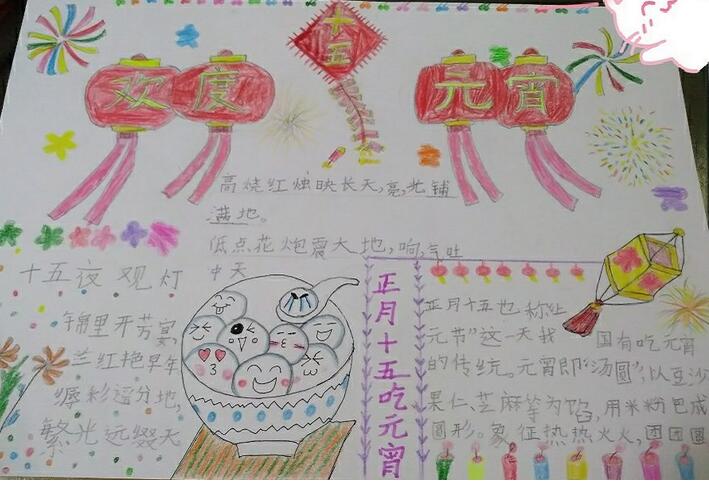 欢度
十五
元宵
高烧红烛映长天,亮,光铺
满地。
低点花炮震大地,响,气吐
中天
十五夜观灯
锦里开芳宴,
兰红艳早年
缛彩遥分地,
繁光远缀天
正月十五吃元宵
正月十五也称上
元节”这一天我国有吃元宵
的传统。元宵即“汤圆”,以豆沙
果仁、芝麻等为馅,用米粉包成
圆形。象征热热火火,团团圆